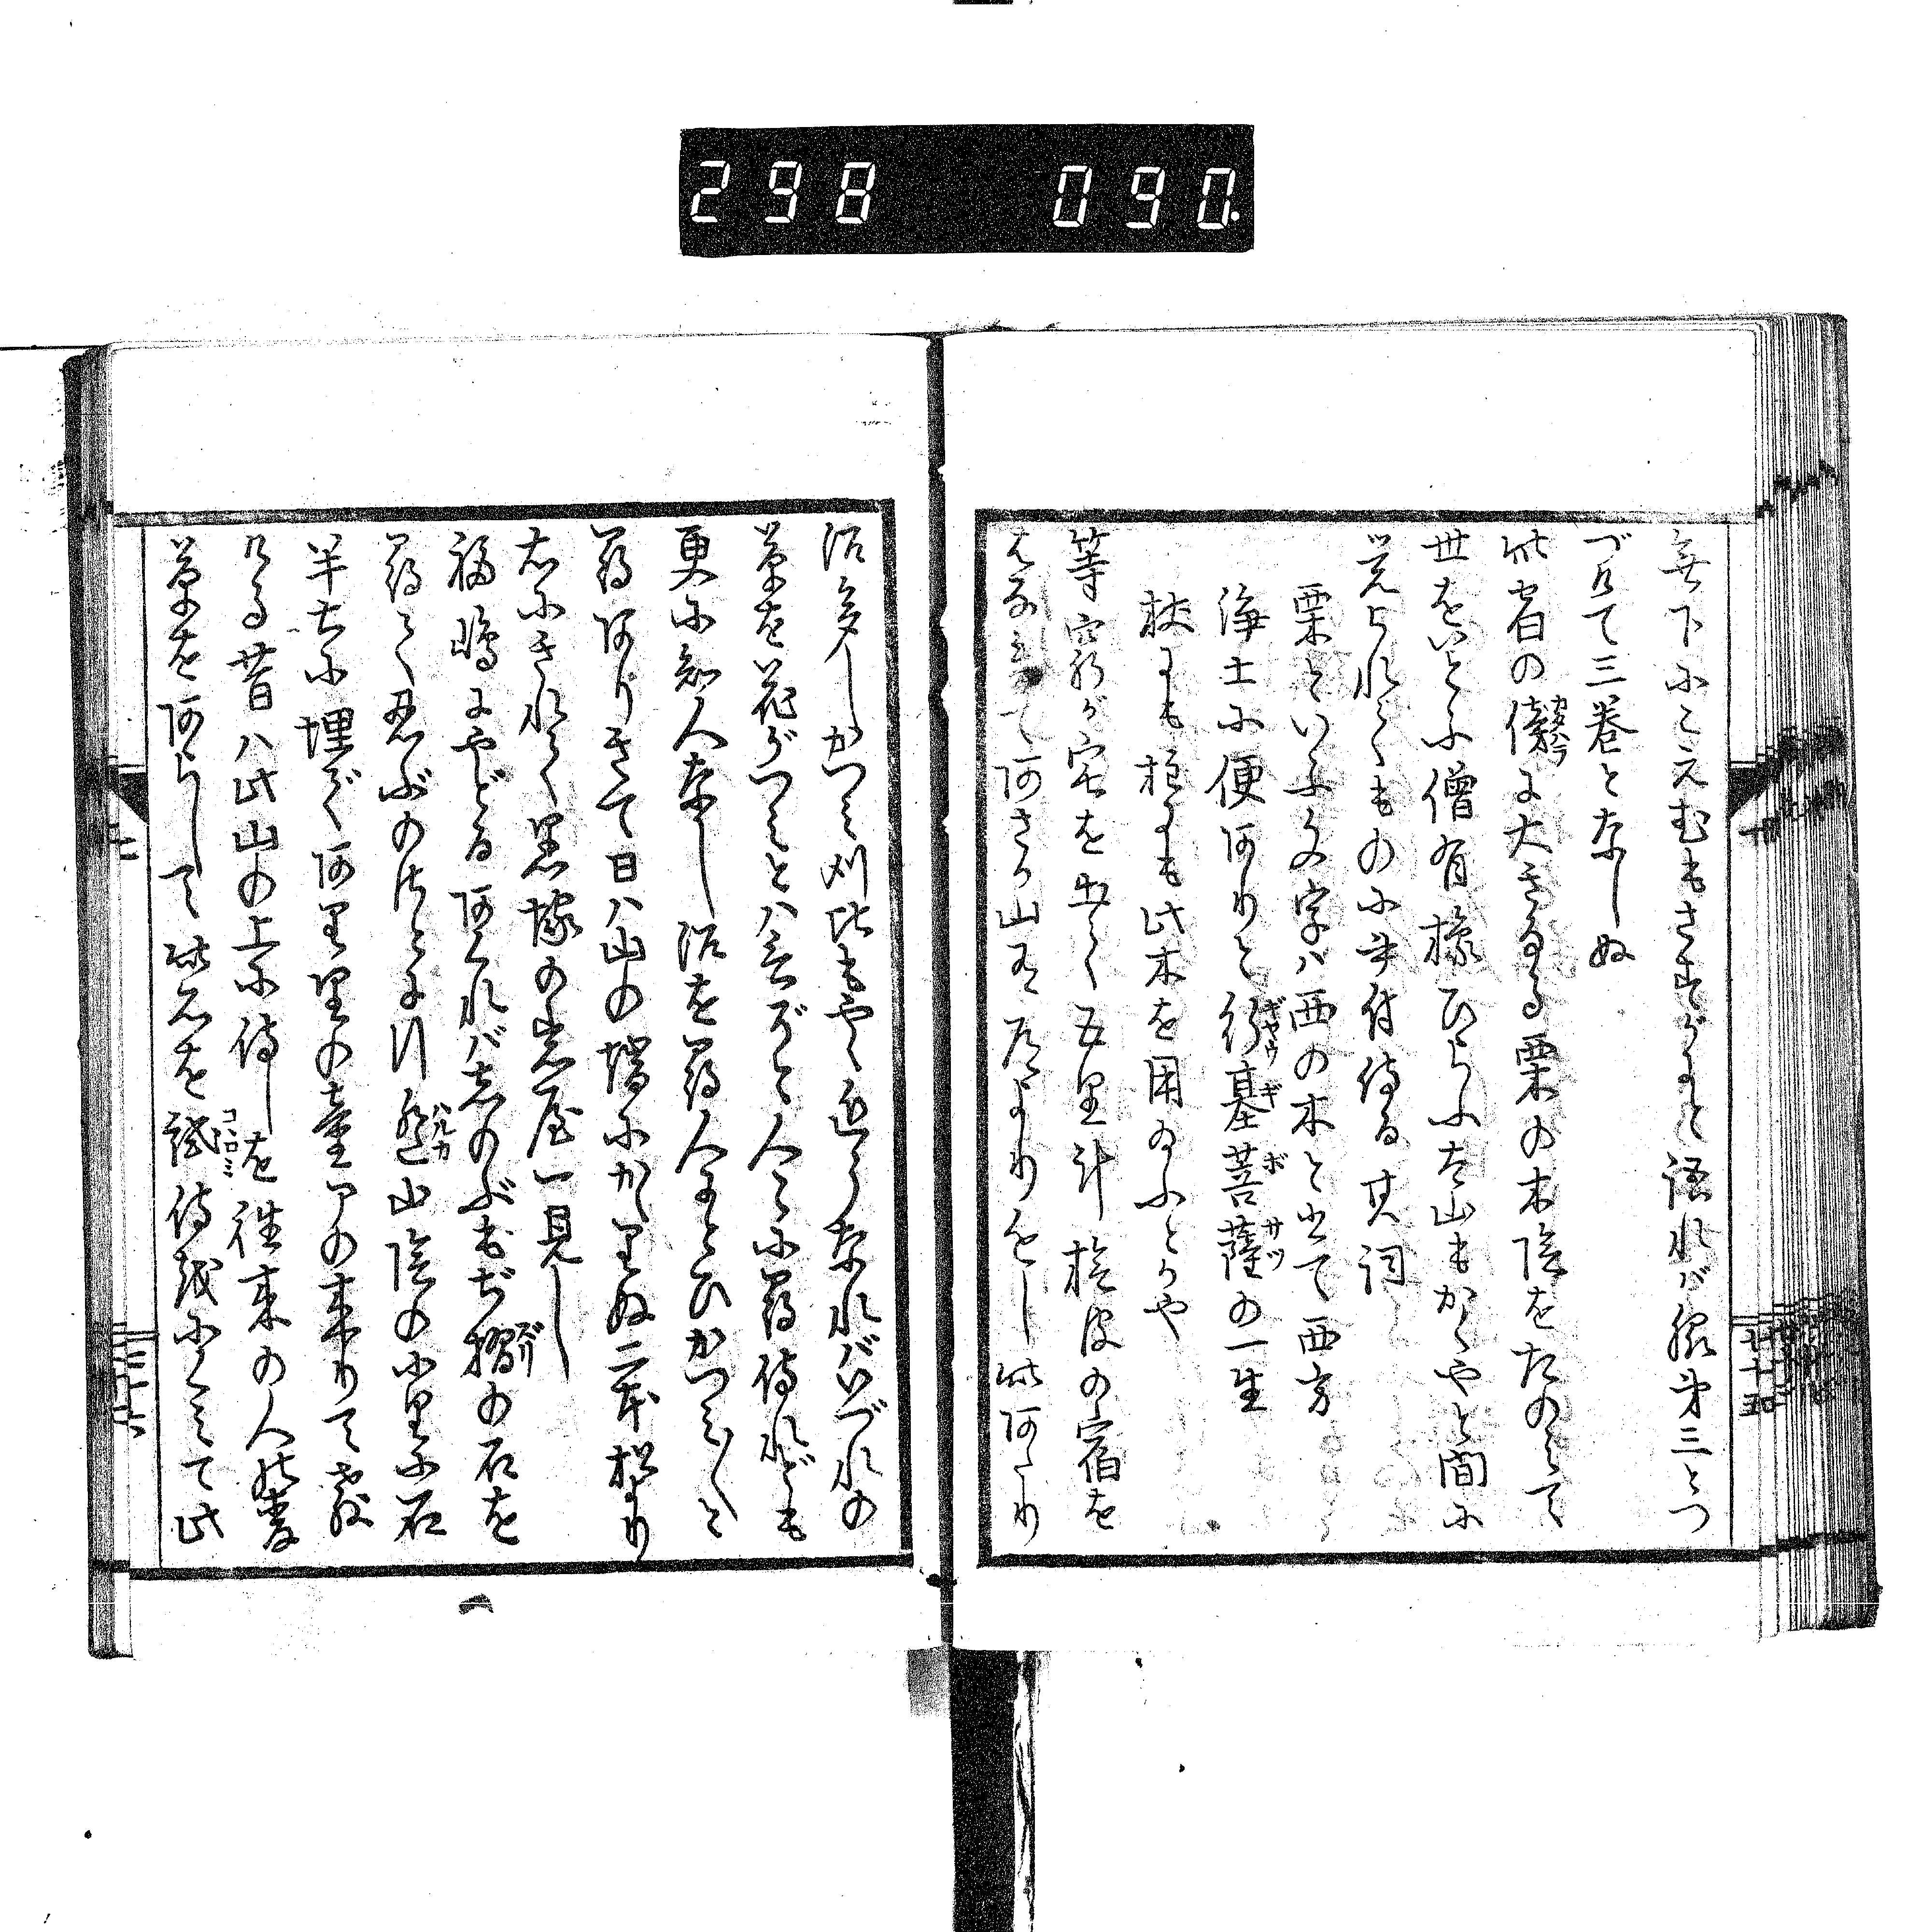 298 090.
無下にこえむもさすがにと語れバ脇第三とつ
づけて三巻となしぬ
此宿の傍に大きなる栗の木陰をたのみて
世をいとふ僧有橡ひらふ太山もかくやと間に
覚られてものに書付侍る其詞
栗といふ文字ハ西の木と书て西方
浄土に便ありと行基菩薩の一生
杖にも柱にも此木を用ゐふとかや
等窮が宅を出て五里計桧皮の宿を
はなれて あさか山有路より近し此あたり
沼多しかつみ刈比もやゝ近うなれバいづれの
草を花がつみとハ云ぞと人〳〵に尋侍れども
更に知人なし沼を尋人にとひかつみ〳〵と
尋ありきて日ハ山の端にかゝりぬ二本松より
右にきれて黒塚の岩屋一見し
福嶋にやどるあくれバしのぶもぢ摺の石を
尋てく忍ぶのさとに行遥山陰の小里に石
半土に埋てあり里の童アの来りて教
ける昔ハ此山の上に侍しを往来の人の麦
草をあらして此石を試侍をにくみて此
カタハラ
ギヤウギボサツ
ズリ
ハルカ
コヽロミ